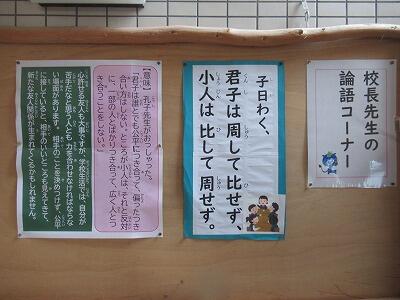 校長先生の
論語コーナー
子曰わく、
君子は周して比せず、
小人は比して周せず。
【意味】孔子先生がおっしゃった。
「君子は誰とでも公平につき合って、偏ったつき
合い方はしないところが小人は、それと反対
に、一部の人とばかりつき合って、広く人とつ
き合うことをしない。」
心許せる友人も大事ですが、学校生活では、自分が
苦手だなと思う人とも、力を合わせなければならな
い場面があります。相手のことを決めつけず、公平
に接していると、相手のいいところも見えてきて、
新たな友人関係が生まれてくるかもしれません。